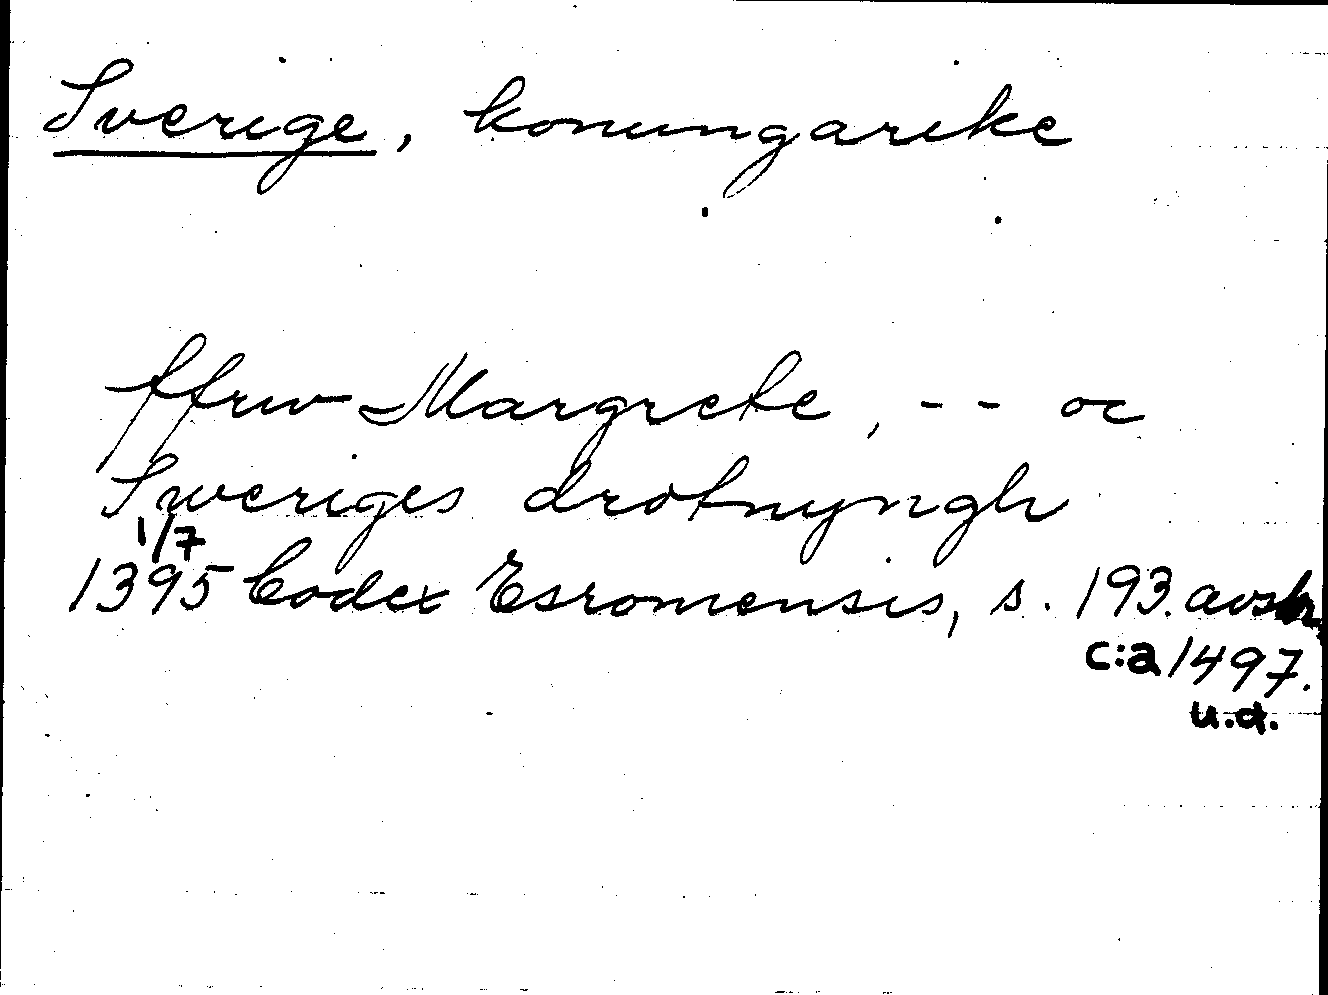 Sverige, konungarike
ffrw Margrete, -- oc
Sweriges drotnyngh
1/7
1395 Codex Esromensis, s. 193. avskr.
c:a 1497.
u.d.